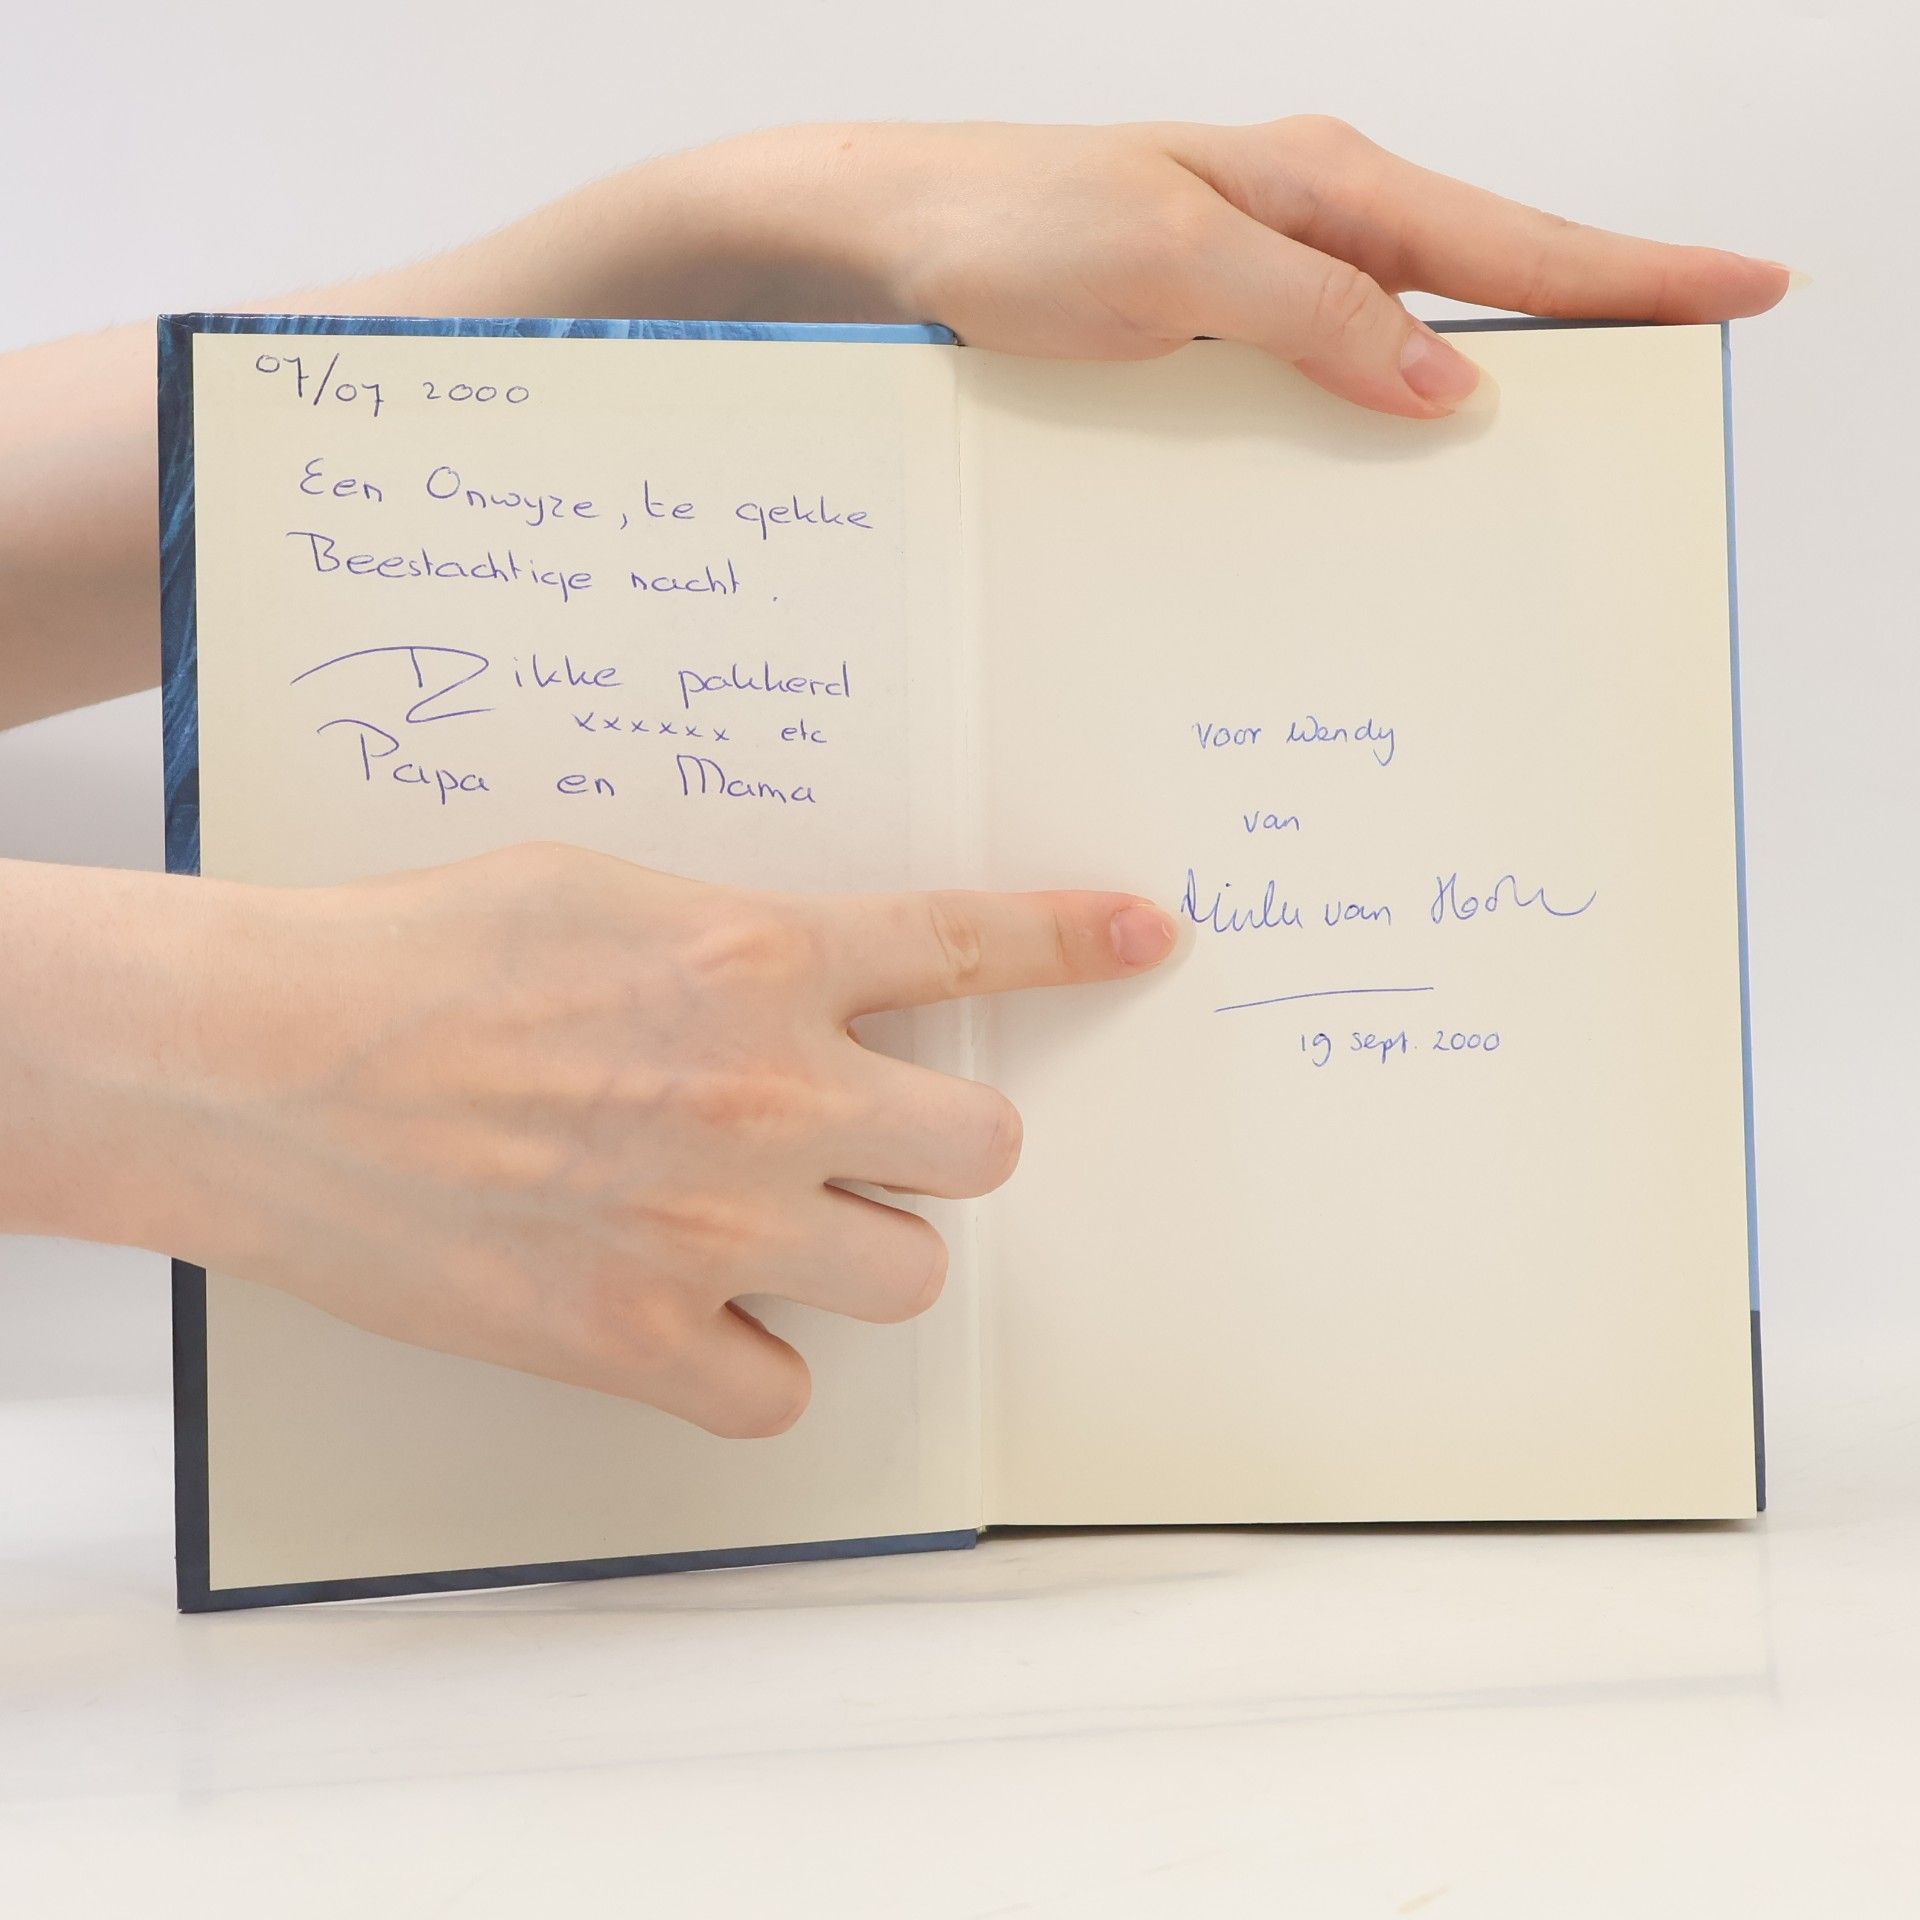 07/07 2000
Een Onwyze, te gekke
Beestachtige nacht.
Dikke pakkerd
xxxxxx etc
Papa en Mama
voor Wendy
van
van
19 sept. 2000